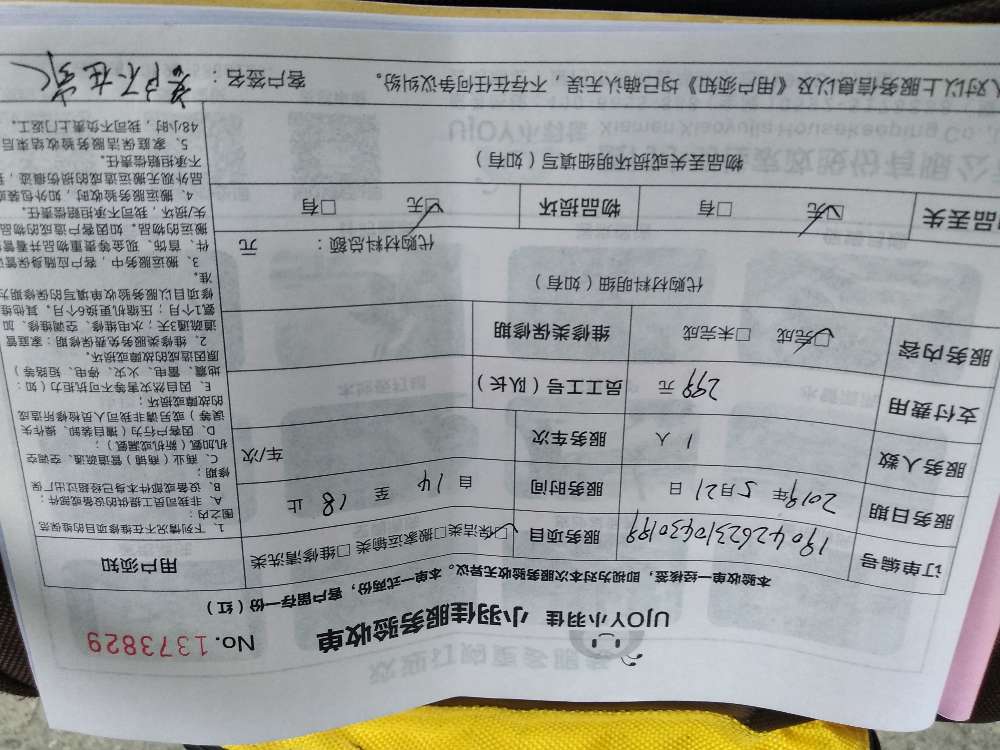 UJOY小羽佳 小羽佳服务验收单 No. 1373829
本验收单一经核签，即视为对本次服务验收无异议。本单一式两份，客户留存一份（红）
订单编号 19042623104630199 服务项目 ☑保洁类□搬家运输类 □维修清洗类
服务日期 2019年 5月21日 服务时间 自 14 至 18 止
服务人数 1 人 服务车次 车/次
支付费用 299 元 员工工号（队长）
服务内容 ☑完成 □未完成 维修类保修期
代购材料明细（如有）
代购材料总额： 元
物品丢失 ☑无 □有 物品损坏 ☑无 □有
物品丢失或损坏明细填写（如有）
人对以上服务信息以及《用户须知》均已确认无误，不存在任何争议纠纷。 客户签名： 客户不在家
用户须知
1、下列情况不在维修项目的维保范
围之内：
A、非我司员工提供的设备或部件；
B、设备或部件本身已经超过出厂保
修期；
C、商业（商铺）管道疏通、空调空
机加氨（新机或漏氨）；
D、因客户行为（擅自装卸、操作失
误等）或另请非我司人员检修所造成
的故障或损坏；
E、因自然灾害等不可抗拒力（如：
地震、雷电、火灾、停电、短路等）
原因造成的故障或损坏。
2、维修类服务免费保修期：家庭管
道疏通3天；水电维修、空调维修、加
氨1个月；压缩机更换6个月。其他维
修项目以服务验收单填写的保修期为
准。
3、搬运服务中，客户应随身保管证
件、首饰、现金等贵重物品并看管
搬运的物品。如因客户造成的物品
失/损坏，我司不承担赔偿责任。
4、搬运服务验收时，如外包装或
品外观无搬运造成的损伤痕迹，我
不承担赔偿责任。
5、家庭保洁服务验收结束后
48小时，我司不负责上门返工。